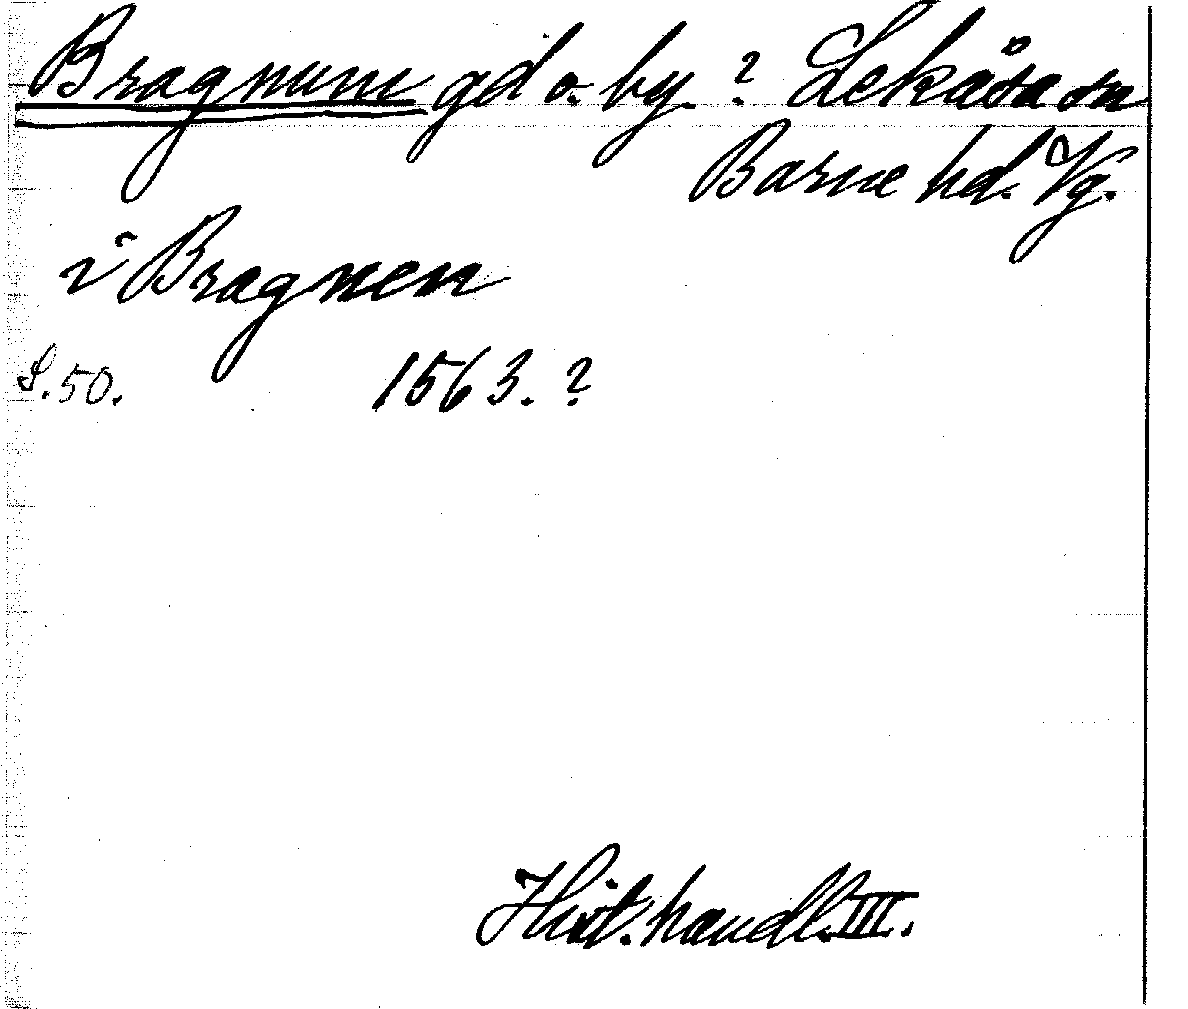 Bragnum gd o. by. ? Lekåsa sn
Barne hd. Vg.
i Bragnen
S. 50. 1563. ?
Hist. handl. III.